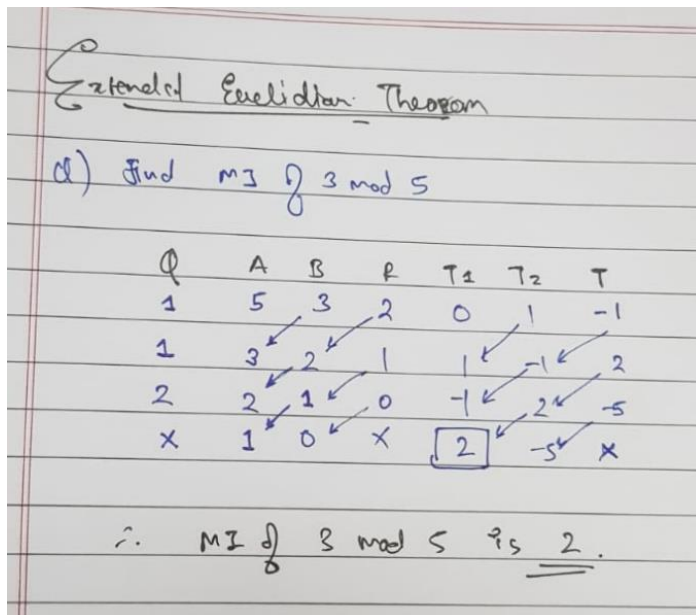 Extended Euclidian Theorem
Q) Find MI of 3 mod 5
Q A B R T1 T2 T
1 5 3 2 0 1 -1
1 3 2 1 1 -1 2
2 2 1 0 -1 2 -5
X 1 0 X 2 -5 X
∴ MI of 3 mod 5 is 2.